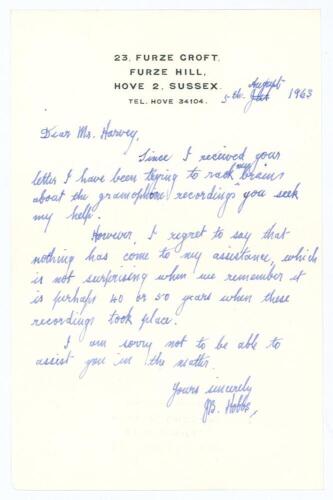 23, FURZE CROFT,
FURZE HILL,
HOVE 2, SUSSEX.
TEL. HOVE 34104.
August
5th. 1963
Dear Mr. Harvey,
Since I received your
letter I have been trying to rack my brains
about the gramophone recordings you seek
my help.
However, I regret to say that
nothing has come to my assistance, which
is not surprising when we remember it
is perhaps 40 or 50 years when these
recordings took place.
I am sorry not to be able to
assist you in the matter.
Yours sincerely
JB. Hobbs,